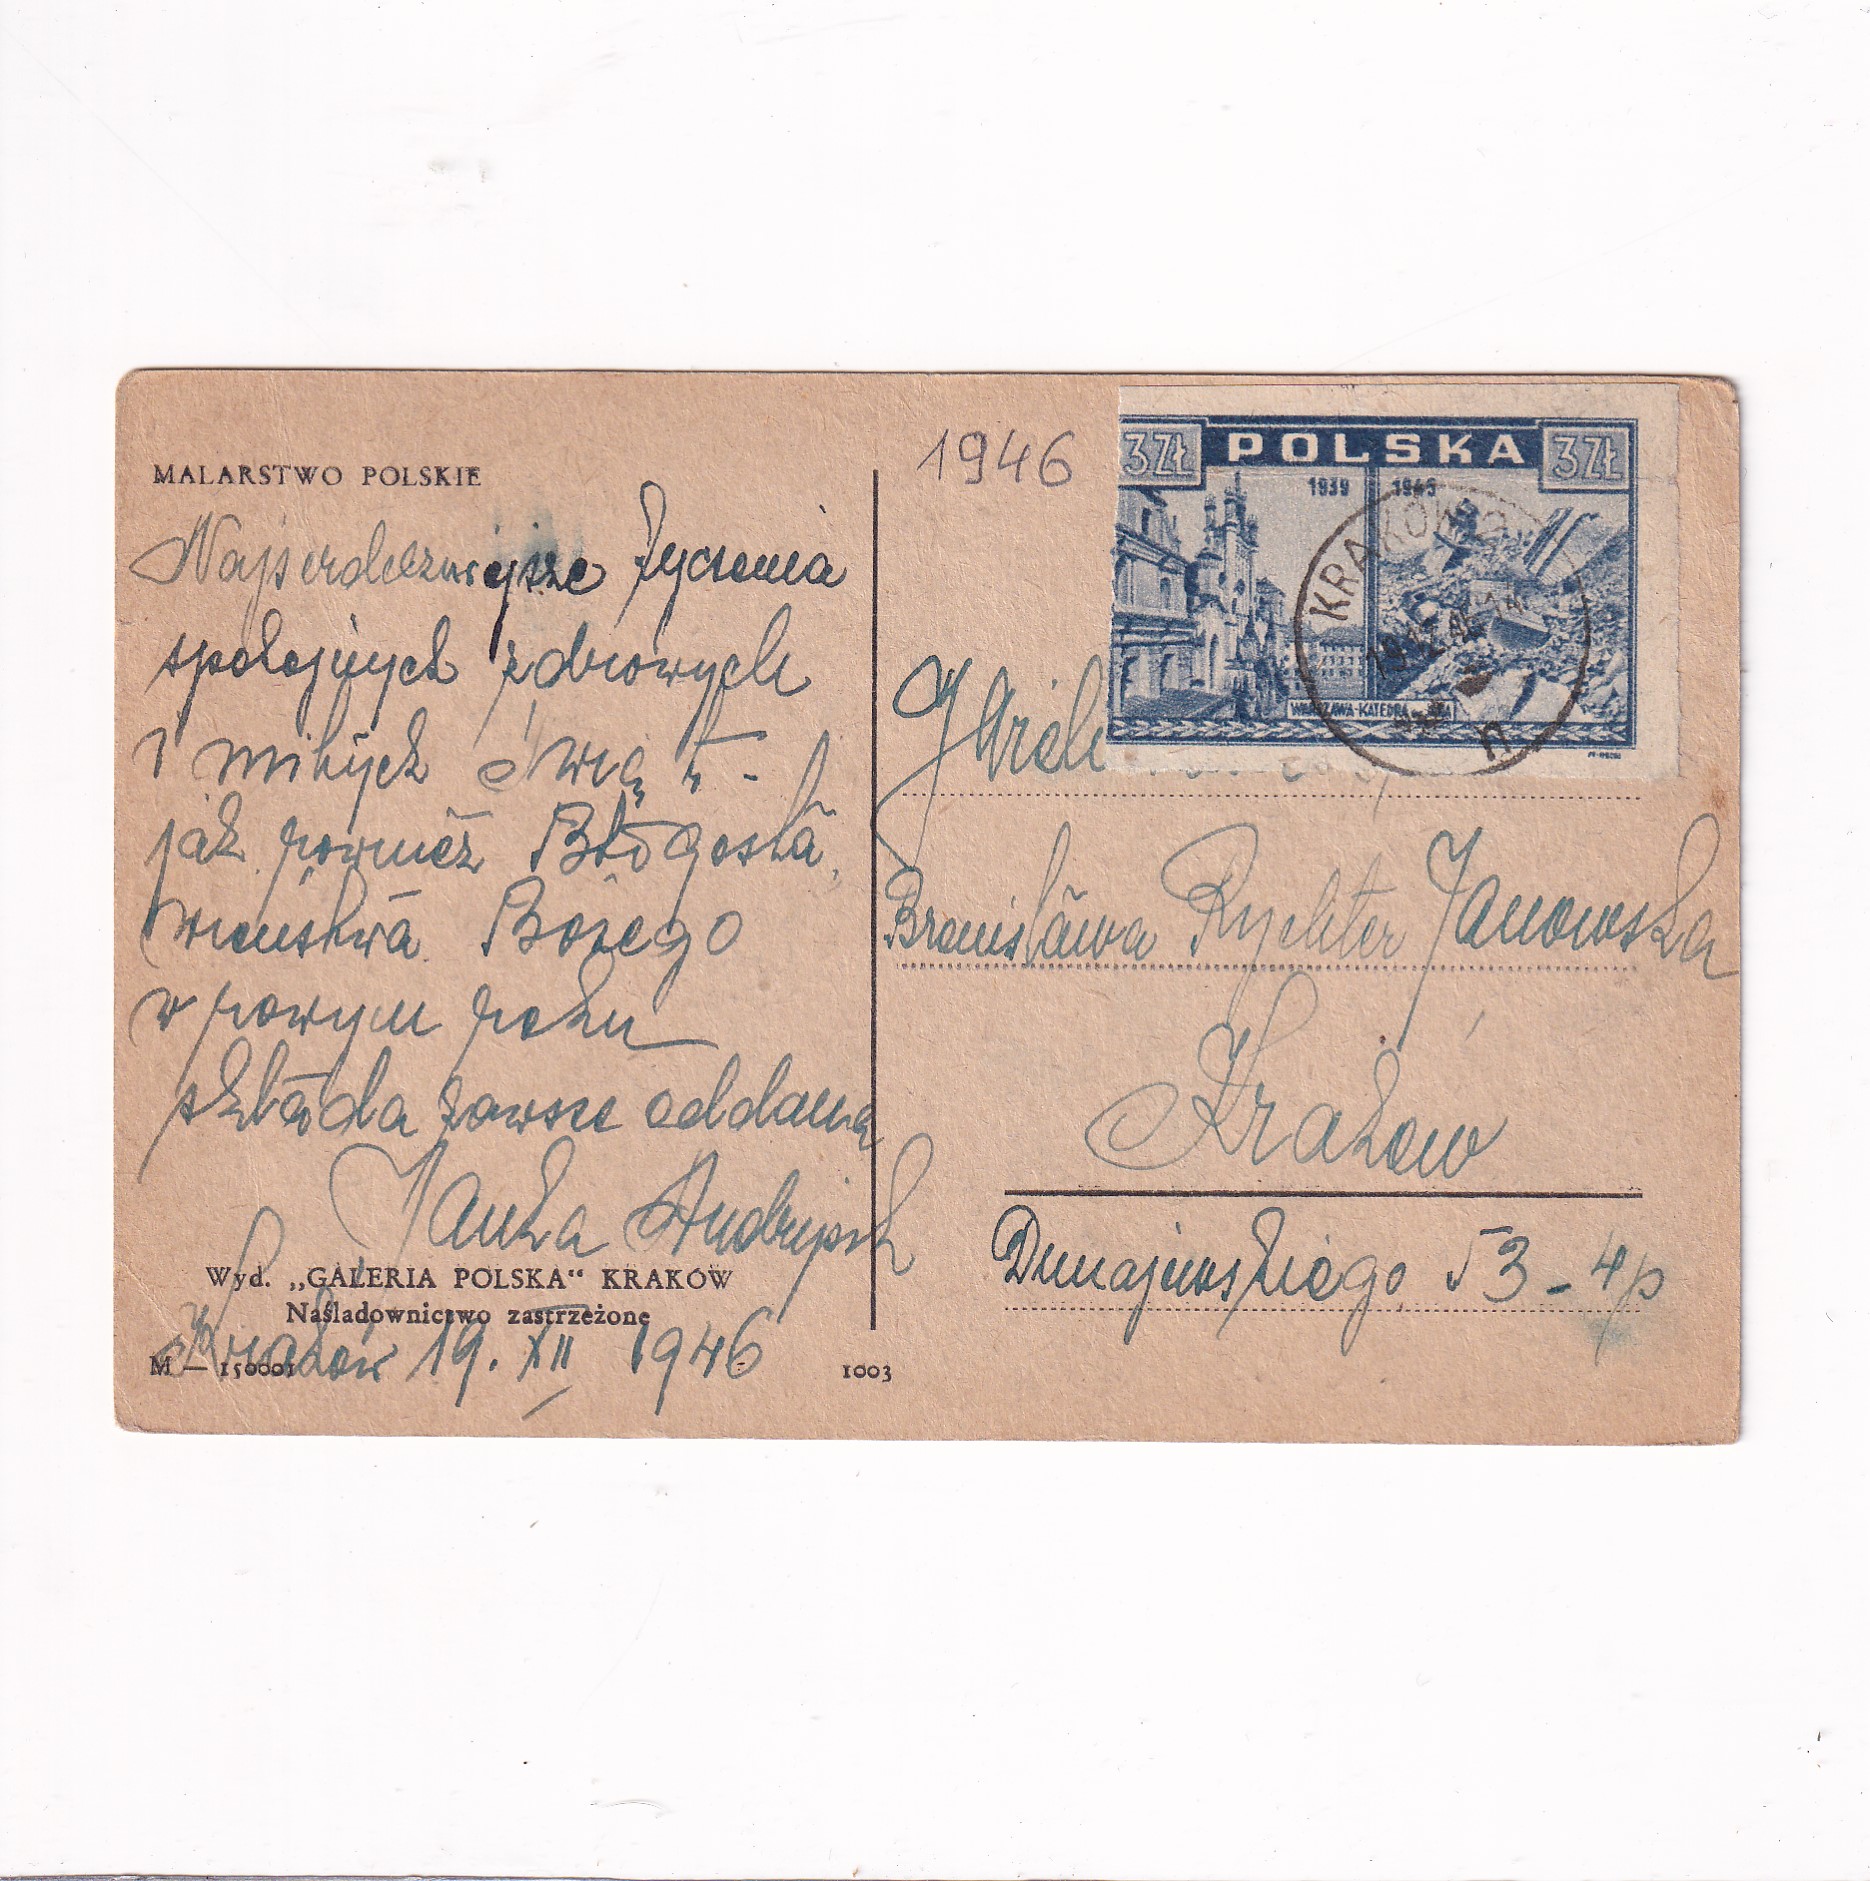 MALARSTWO POLSKIE
Najserdeczniejsze życzenia
spokojnych zdrowych
i miłych świąt -
jak również Błogosła
wieństwa Bożego
w nowym roku
składa zawsze oddana
Janka
Wyd. „GALERIA POLSKA" KRAKÓW
Naśladownictwo zastrzeżone
Kraków 19. XII 1946
M — 150001
1003
1946
3ZŁ POLSKA 3ZŁ
1939 1945
WARSZAWA-KATEDRA
KRAKÓW 2
19.12.46
Bronisława Rychter Janowska
Kraków
Dunajewskiego 53 - 4p